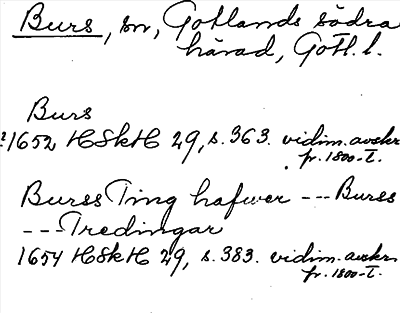 Burs, sn, Gotlands södra
härad, Gotl. l.
Burs
1652 HSkH 29, s. 363. vidim. avskr.
fr. 1800-t.
Burss Ting hafwer --- Burss
--- Tredingar
1654 HSkH 29, s. 383. vidim. avskr.
fr. 1800-t.